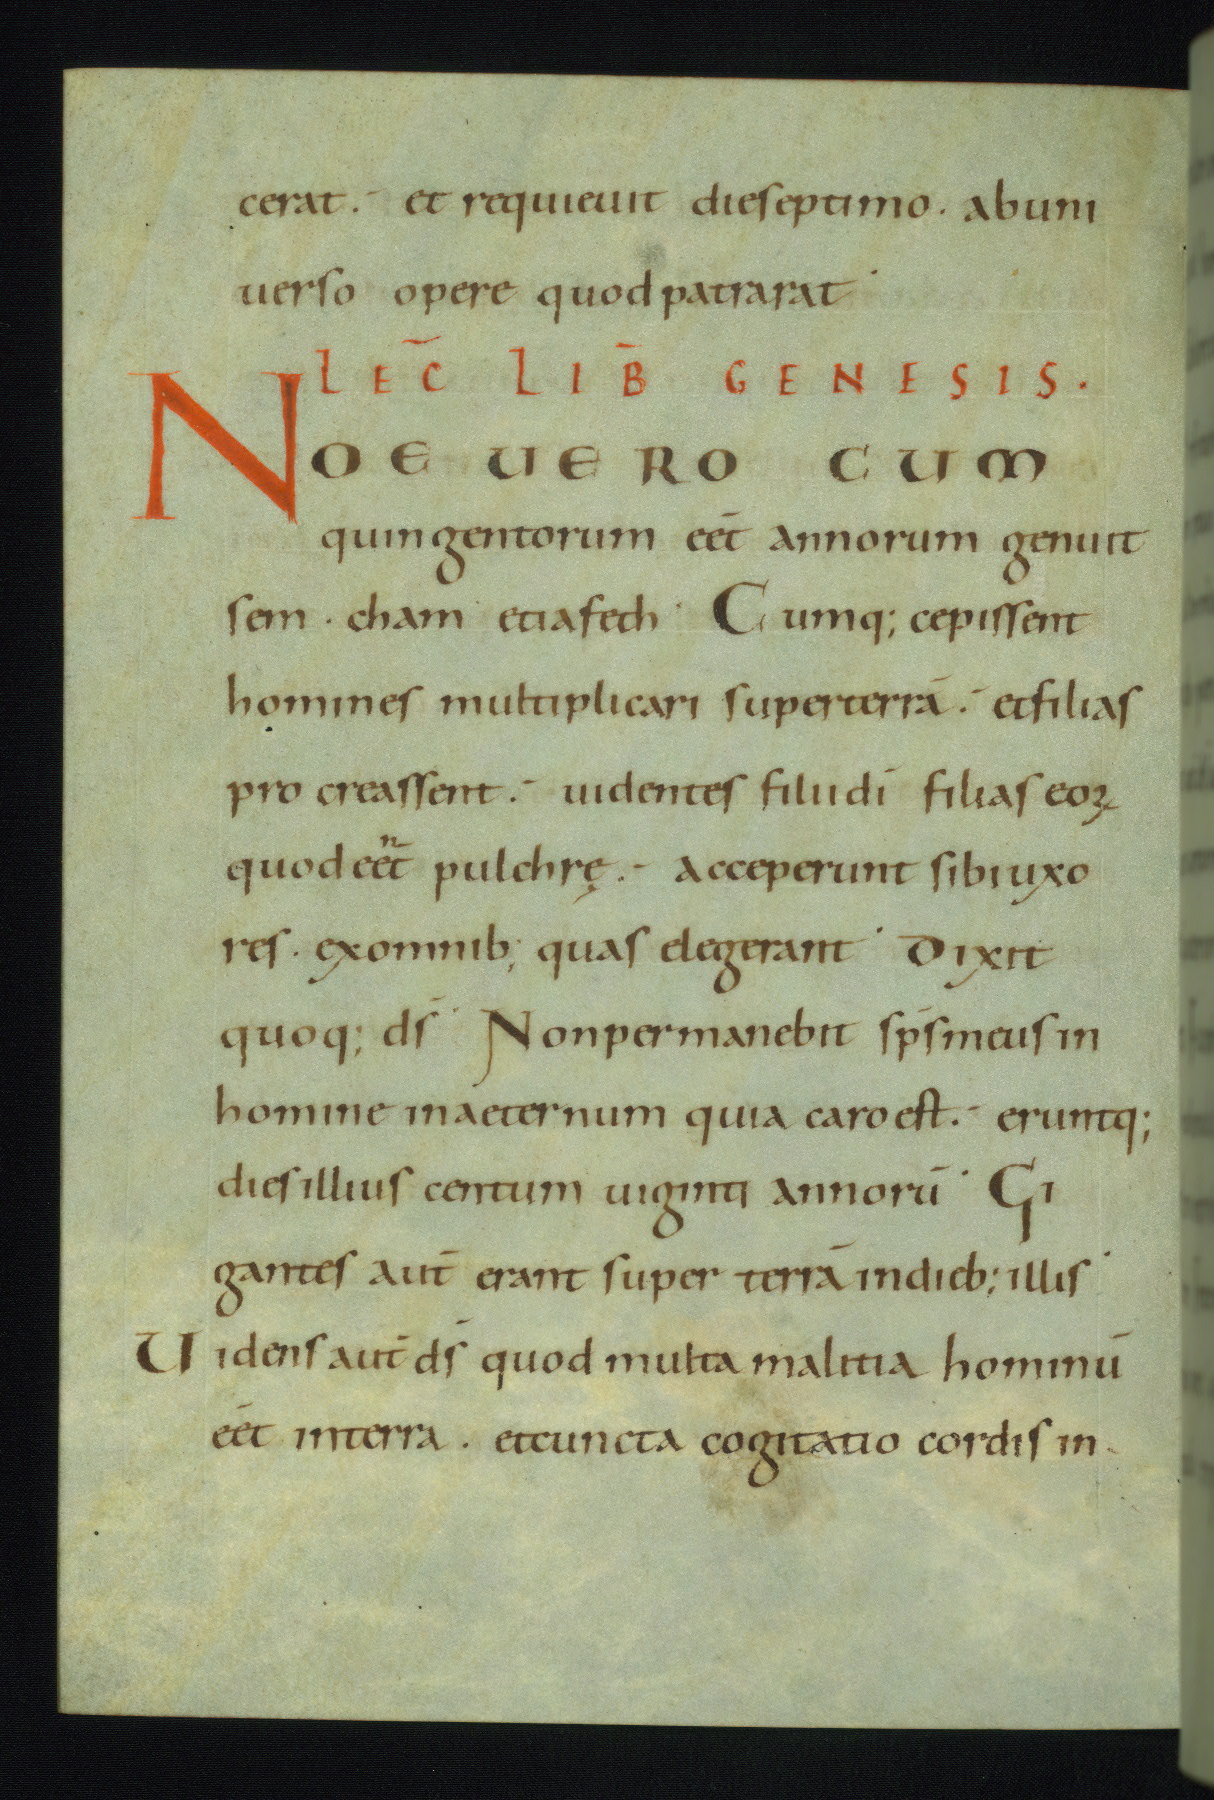 cerat. et requieuit die septimo. ab uni
uerso opere quod patrarat
LEC̄ LIB̄ GENESIS.
NOE UERO CUM
quingentorum eēt annorum genuit
sem. cham et iafeth Cumq; cepissent
homines multiplicari super terrā. et filias
procreassent. uidentes filii dī filias eoꝝ
quod eēnt pulchrę. acceperunt sibi uxo
res. ex omnib; quas elegerant Dixit
quoq; ds̄ Non permanebit sp̄s meus in
homine in aeternum quia caro est. eruntq;
dies illius centum uiginti annorū Gi
gantes aut̄ erant super terrā in dieb; illis
Uidens aut̄ ds̄ quod multa malitia hominū
eēt in terra. et cuncta cogitatio cordis in